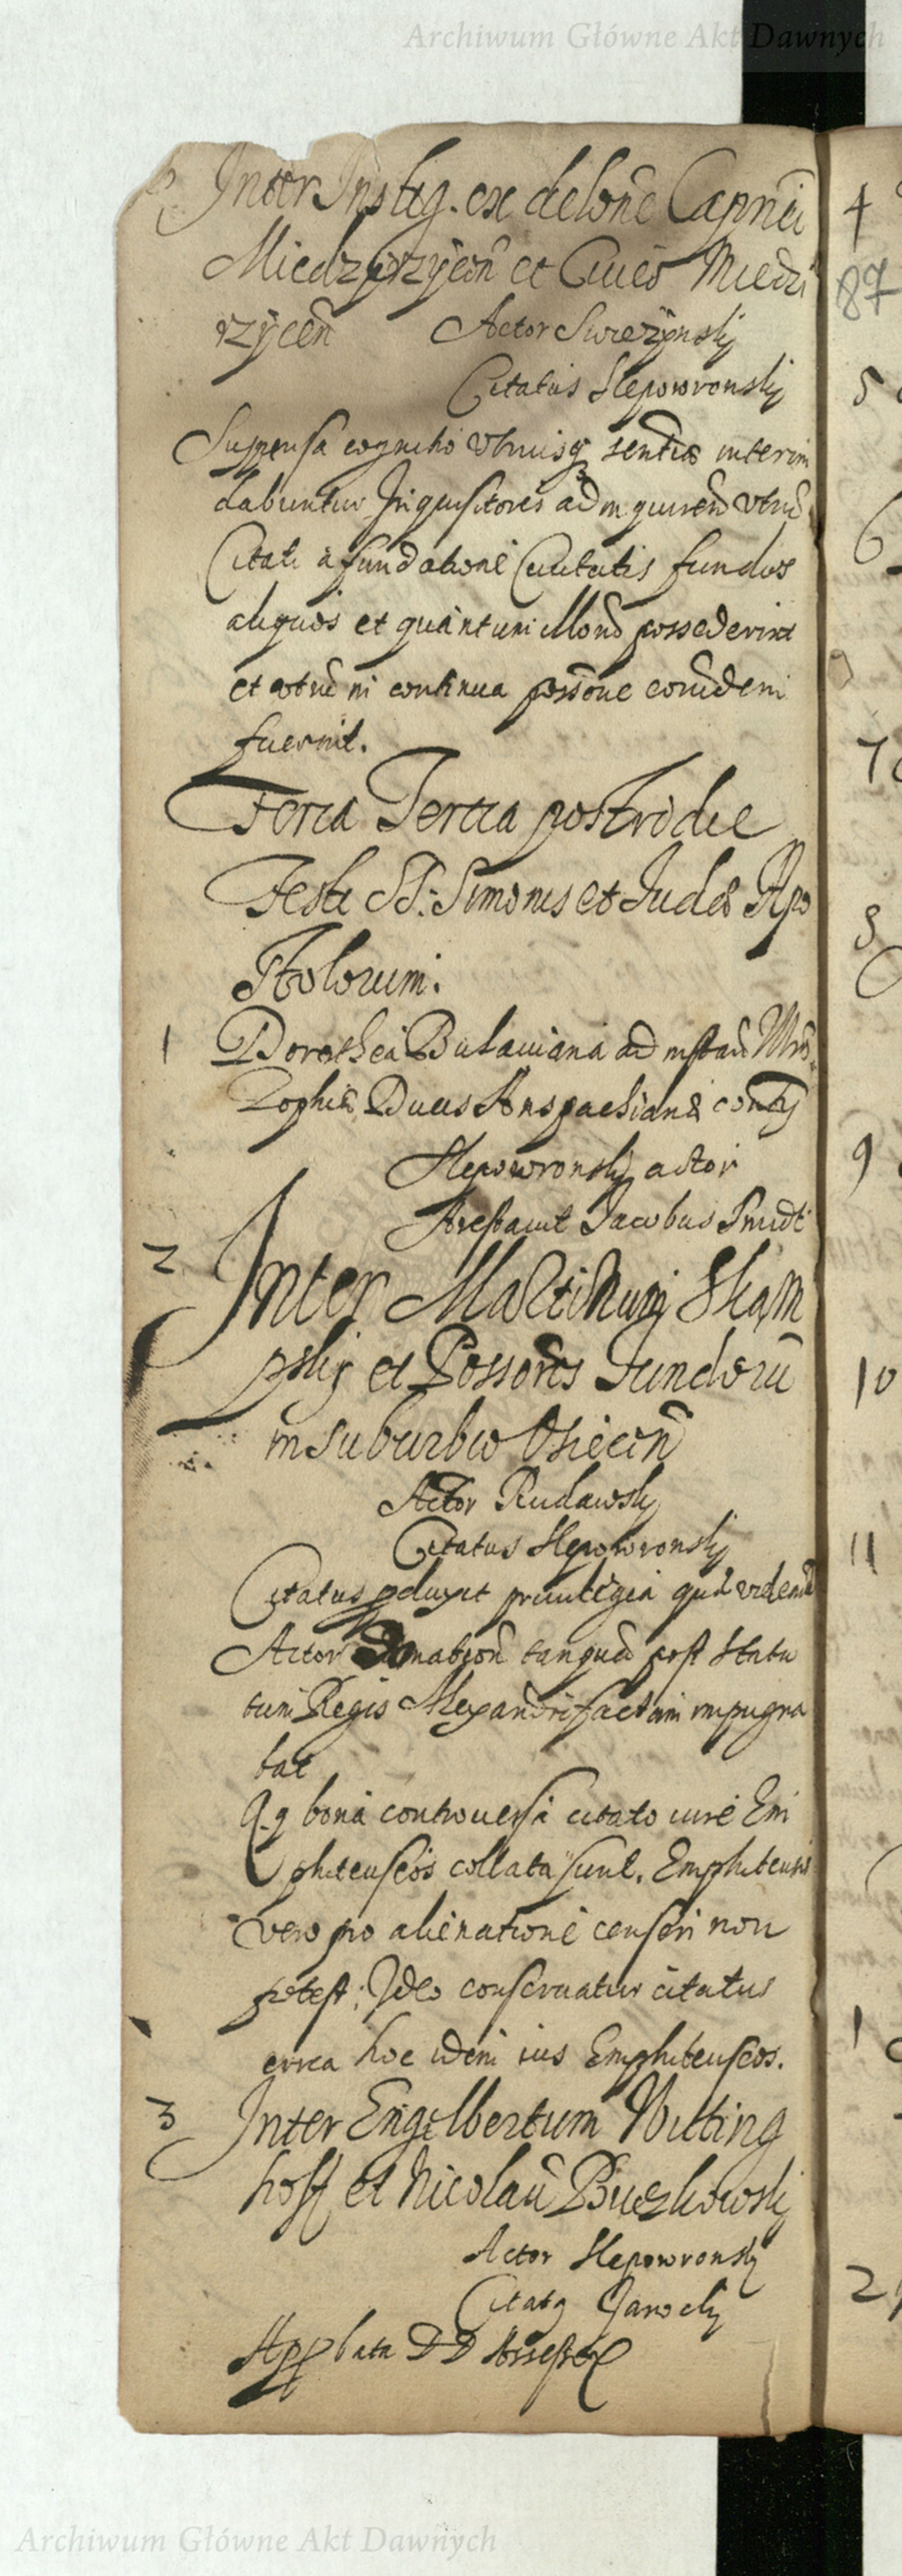 Archiwum Główne Akt Dawnych
Inter Instig. ex delōne Capnei
Miedzyrzycen̄ et Cives Miedzi
rzÿcen̄ Actor Swieżÿnskÿ
Citatus Slepowronskÿ
Suspensa cognitio utriusq₃ sentiæ interim
dabuntur Inquisitores ad inquirend̄ utrū
Citati à fundatione Civitatis fundos
aliquos et quantum illorū possederint
et utrū in continua possōne eorūdem
fuerint.
Feria Tertia postridie
Festi SS: Simonis et Judæ Apo
stolorum.
1 Dorothea Bulawiana ad instan̄
Zophiæ Ducis Anspachianæ
Slepowronskÿ actor
Arestavit Jacobus
2 Inter Martinum Skam
pskÿ et Possores Fundorū
in suburbio Osiecen̄
Actor Rudawskÿ
Citatus Slepowronskÿ
Citatus produxit privilegia quā videndā
Actor Donationē tanquā post Statu
tum Regis Alexandri factam impugna
bat
Qq bona controversa citato iure Em
phiteuseos collata sunt. Emphiteusis
vero pro alienatione censeri non
potest; Ideo conservatur citatus
circa hoc idem ius Emphiteuseos.
3 Inter Engelbertum Vitting
hoff et Nicolaū Buczkowskÿ
Actor Slepowronskÿ
Citatq Janockÿ
Applata DD Assessor
4
87
5
6
7
8
9
10
11
1
2
Archiwum Główne Akt Dawnych